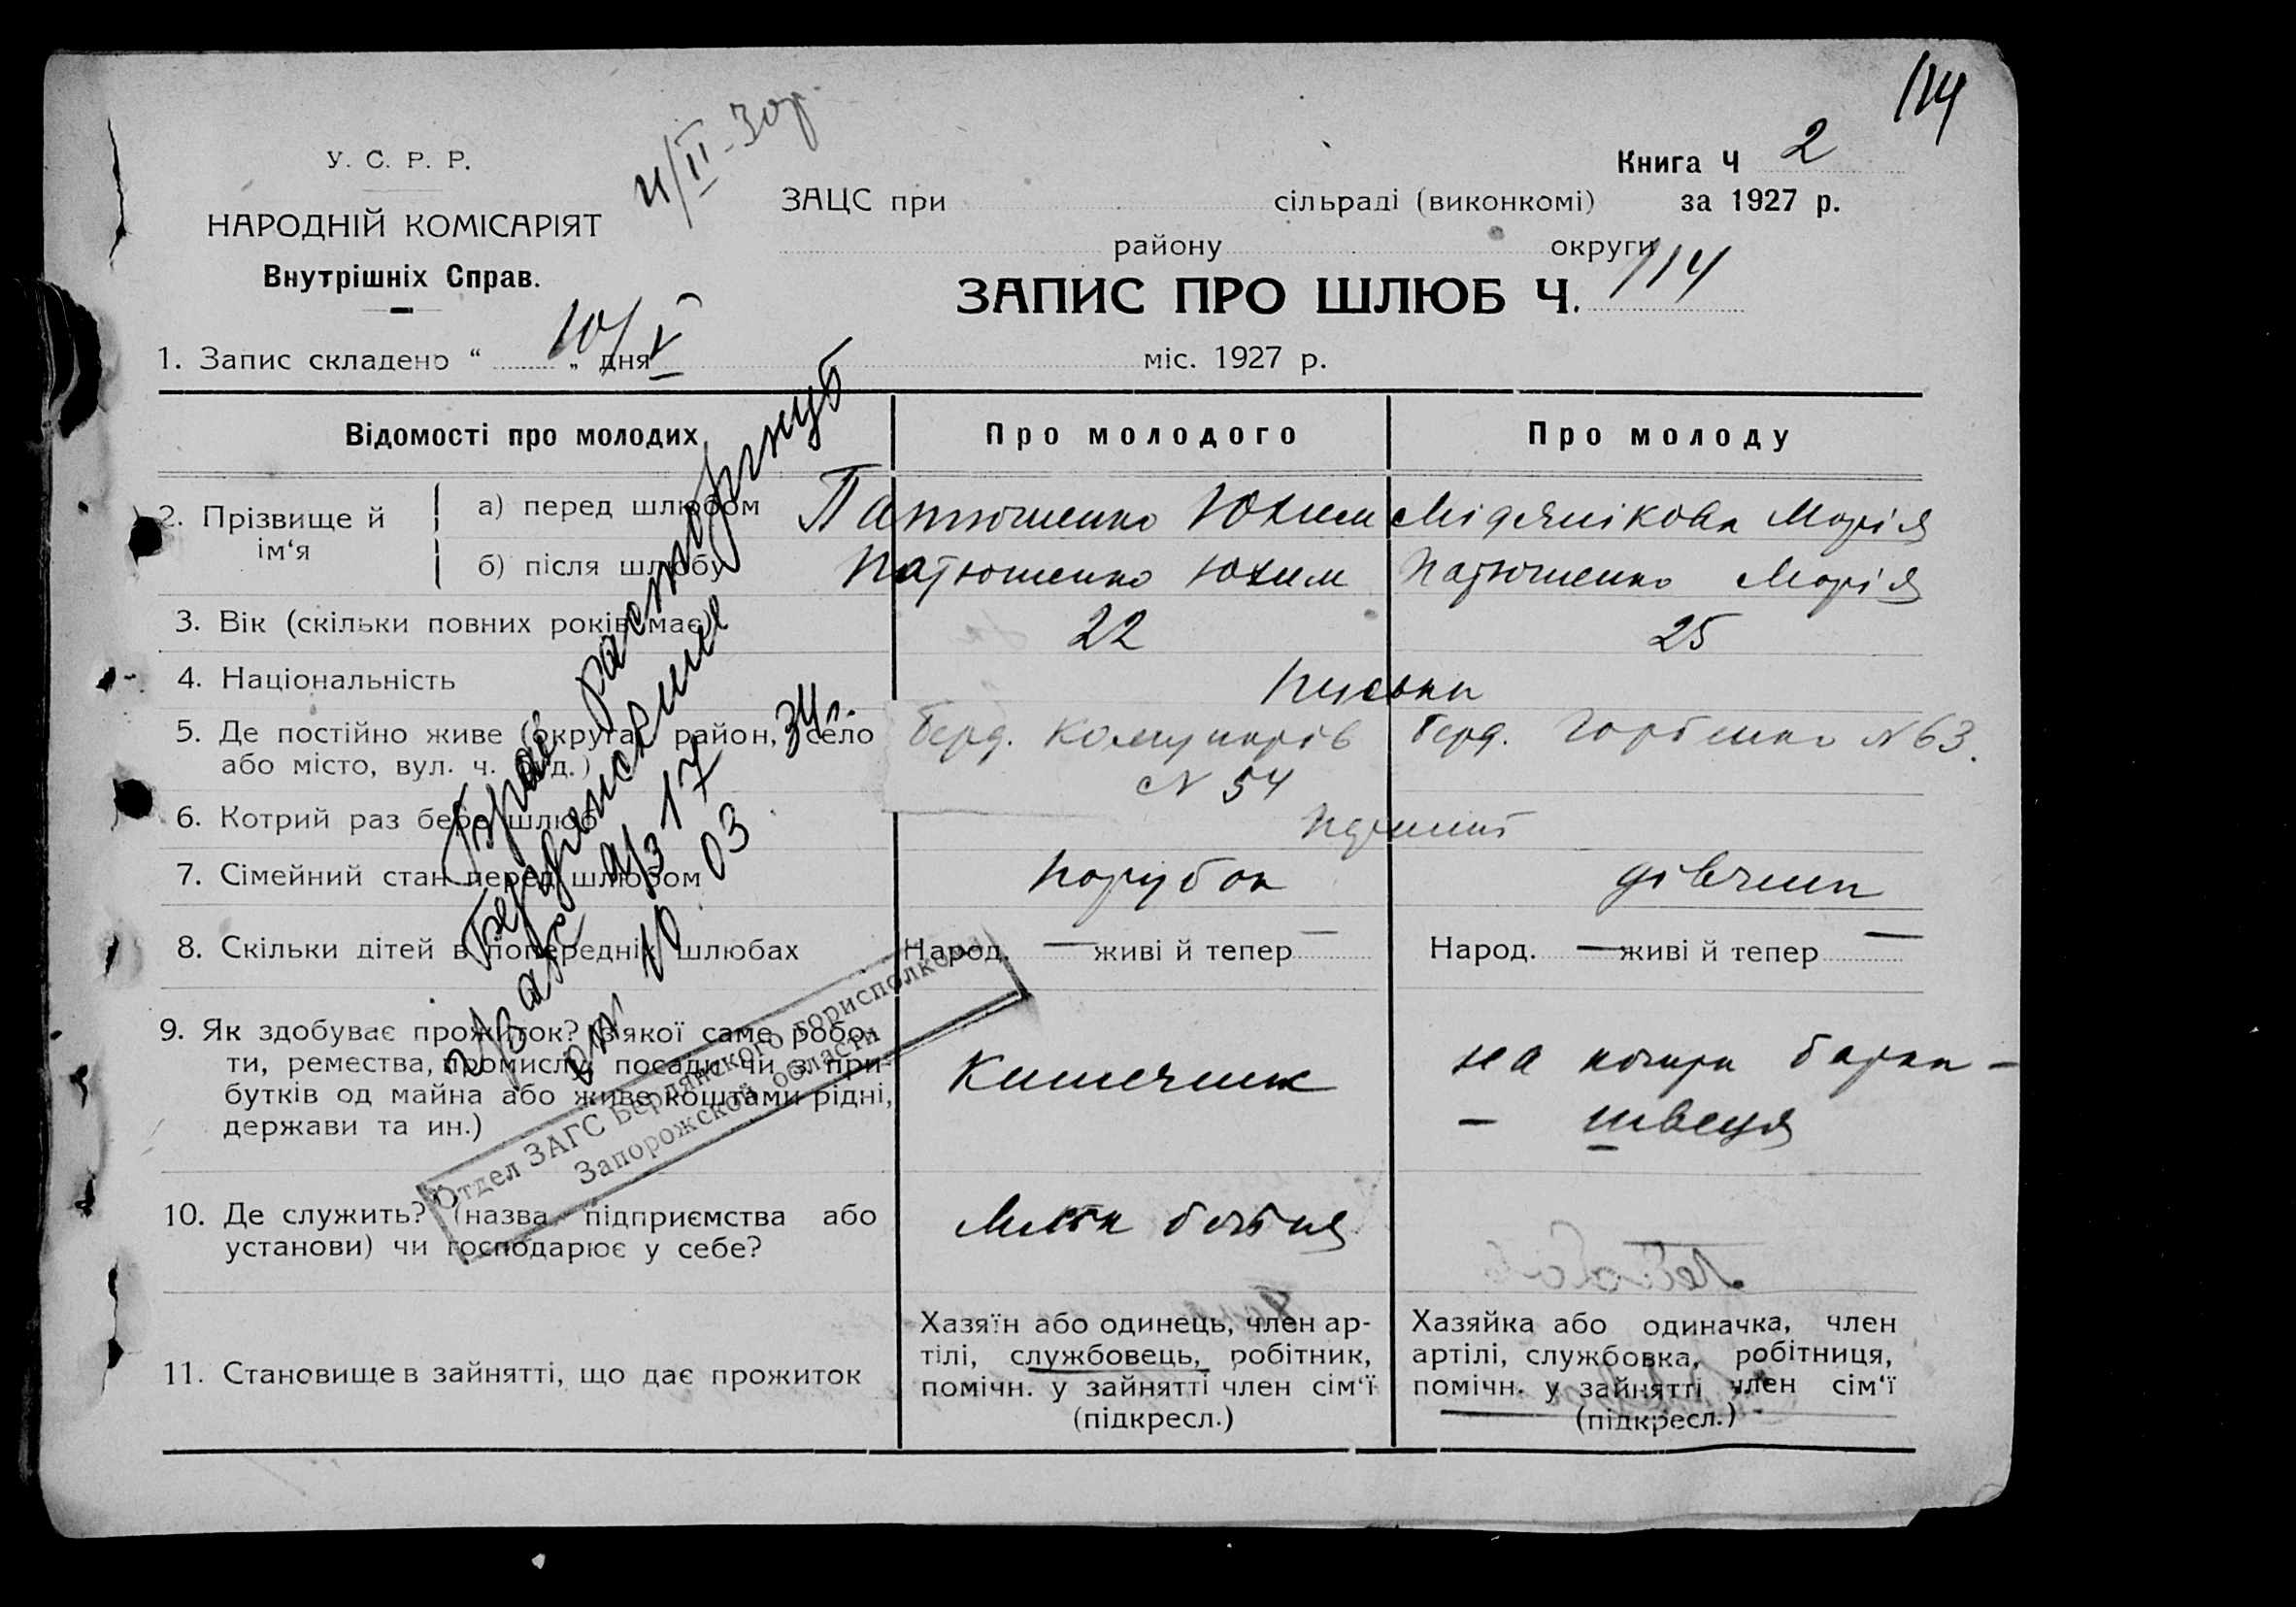 114
У. С. Р. Р.
НАРОДНІЙ КОМІСАРІЯТ
Внутрішніх Справ.
Книга Ч 2
ЗАЦС при сільраді (виконкомі) за 1927 р.
району округи
ЗАПИС ПРО ШЛЮБ Ч. 114
1. Запис складено “ 10/V „ дня міс. 1927 р.
Відомості про молодих
Про молодого
Про молоду
2. Прізвище й ім‘я
а) перед шлюбом
Патюшенко Юхим
Мідянікова Марія
б) після шлюбу
Патюшенко Юхим
Патюшенко Марія
3. Вік (скільки повних років має)
22
25
4. Національність
5. Де постійно живе (округа, район, село
або місто, вул. ч. буд.)
Берд. Комунарів
N 54
Берд. Горбенко N 63.
6. Котрий раз бере шлюб
7. Сімейний стан перед шлюбом
Парубок
дівчина
8. Скільки дітей в попередніх шлюбах
Народ. — живі й тепер —
Народ. — живі й тепер —
9. Як здобуває прожиток? (з якої саме робо-
ти, ремества, промислу, посади чи з при-
бутків од майна або живе коштами рідні,
держави та ин.)
Кишечник
на
— швеця
10. Де служить? (назва підприємства або
установи) чи господарює у себе?
11. Становище в зайнятті, що дає прожиток
Хазяїн або одинець, член ар-
тілі, службовець, робітник,
помічн. у зайнятті член сім‘ї
(підкресл.)
Хазяйка або одиначка, член
артілі, службовка, робітниця,
помічн. у зайнятті член сім‘ї
(підкресл.)
Брак расторгнут
Бердянским
Загс а/з 17 34г.
от 10 03
Отдел ЗАГС Бердянского горисполкома
Запорожской области